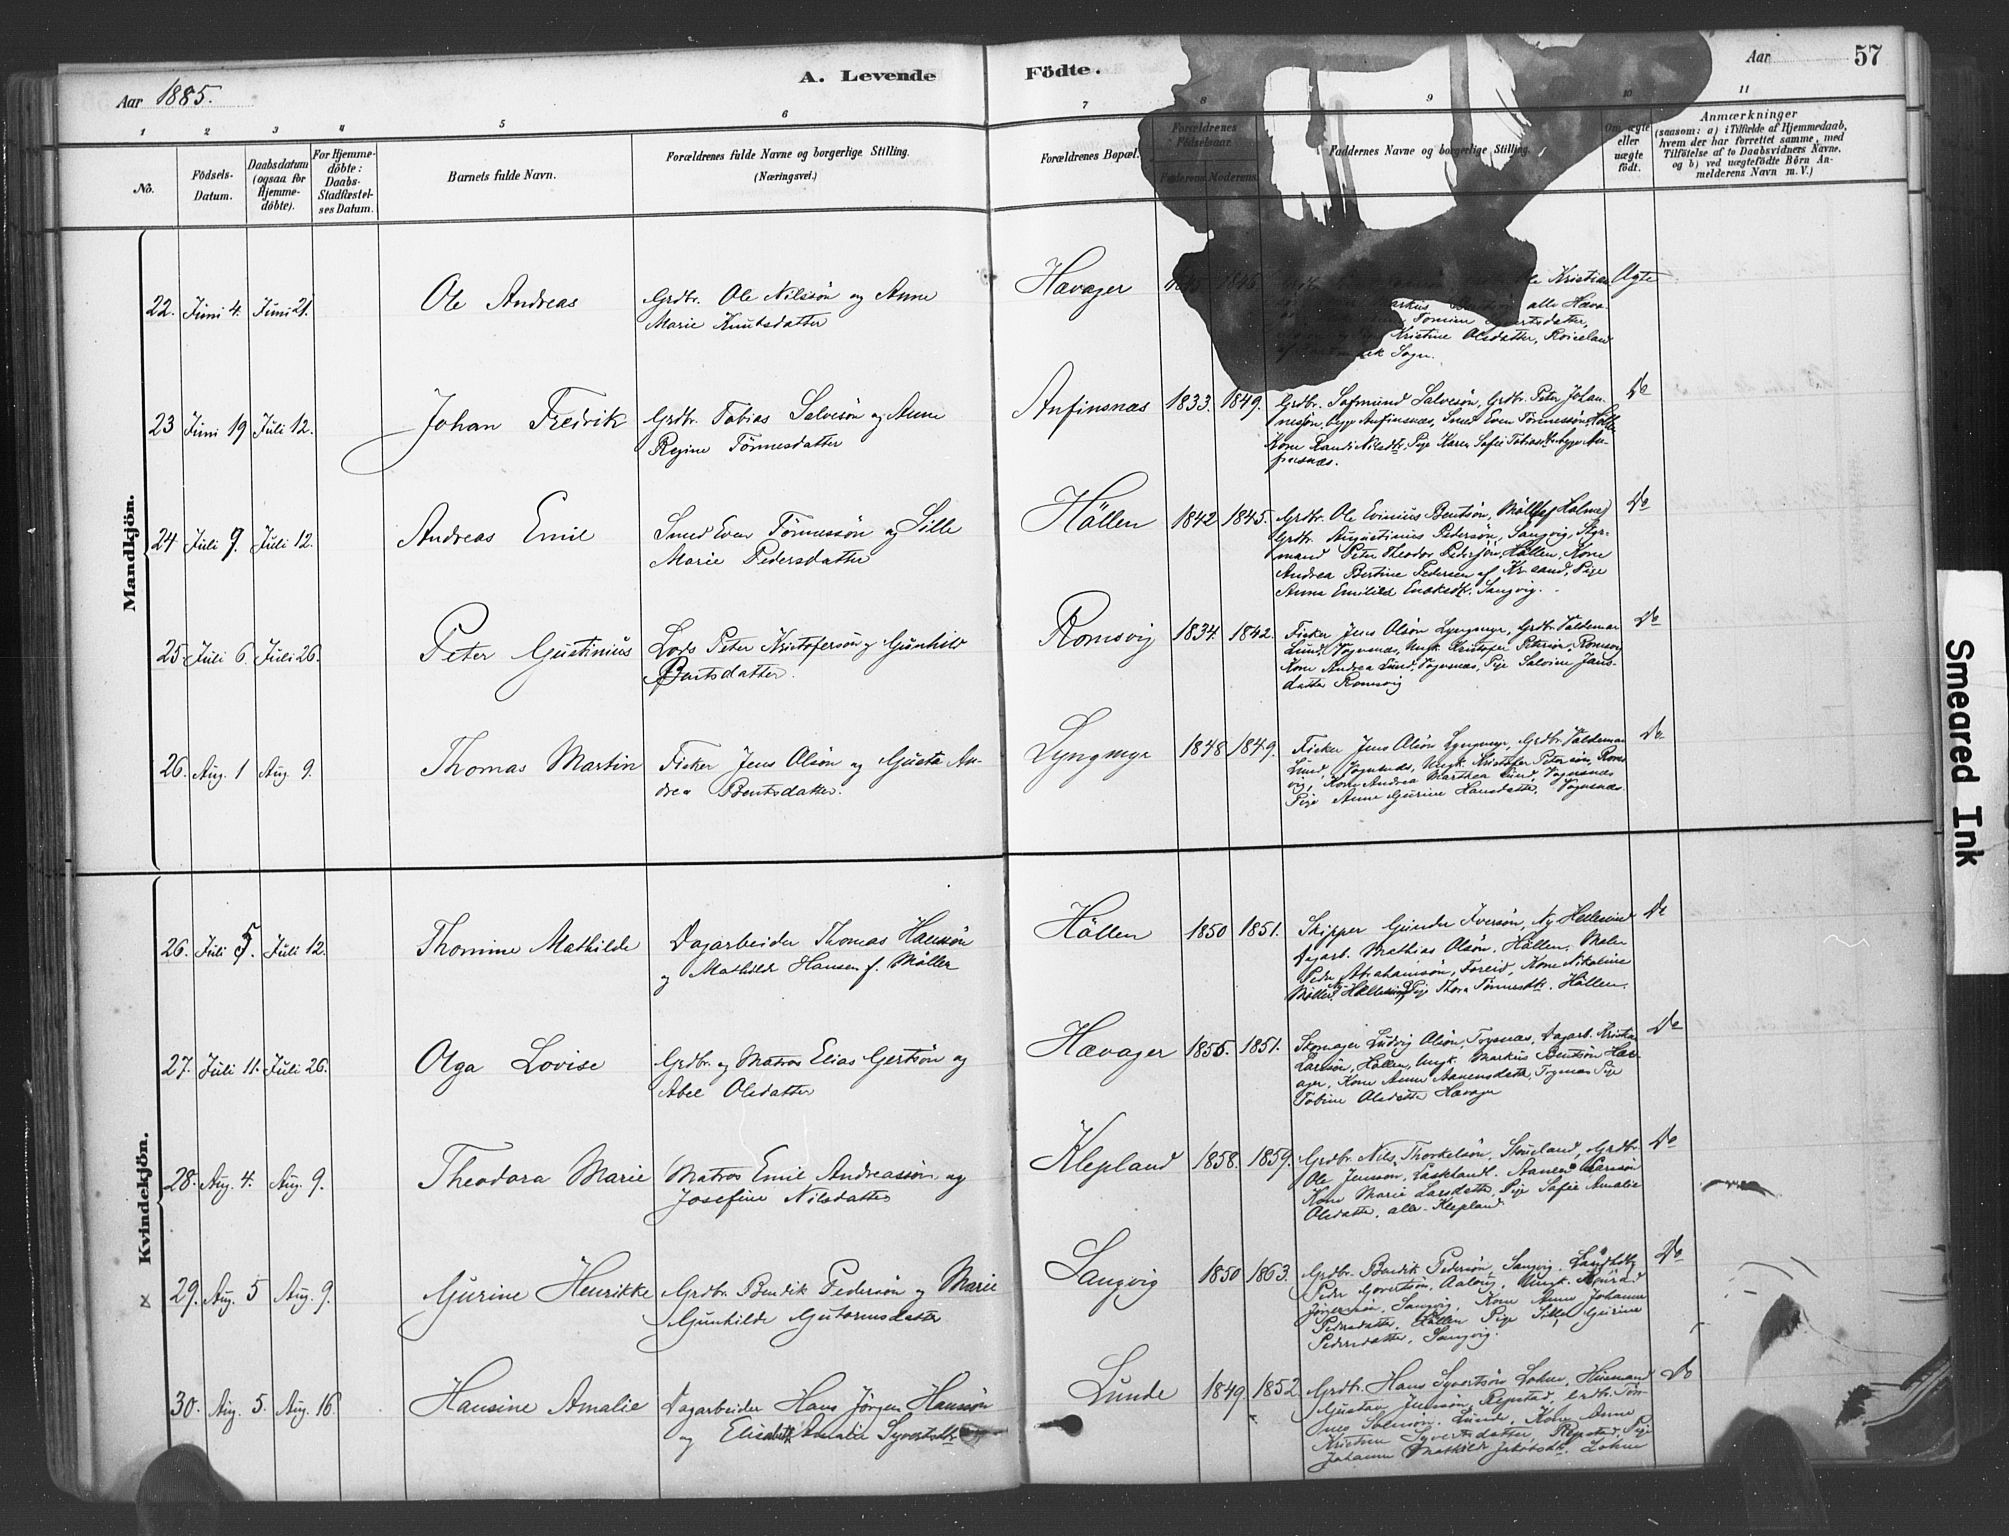 Aar 1885.
A. Levende Födte.
Aar
57
1 2 3 4 5 6 7 8 9 10 11
No.
Födsels-Datum.
Daabsdatum (ogsaa for Hjemme-döbte).
For Hjemme-döbte: Daabs-Stadfæstel-ses Datum.
Barnets fulde Navn.
Forældrenes fulde Navne og borgerlige Stilling.
(Næringsvei.)
Forældrenes Bopæl.
Forældrenes Födselsaar.
Faderens. Moderens.
Faddernes Navne og borgerlige Stilling.
Om ægte eller uægte födt.
Anmærkninger
(saasom: a) i Tilfælde af Hjemmedaab,
hvem der har forrettet samme, med
Tilföielse af to Daabsvidners Navne,
og b) ved uægtefödte Börn An-
melderens Navn m. V.)
Mandkjön.
22. Juni 4. Juni 21. Ole Andreas
Grdbr. Ole Nilssön og Anne
Marie Knutsdatter
Havager 1846 Kristian Ægte
alle Hava-
Kristine Olsdatter, Roiseland
Sogn.
23 Juni 19 Juli 12. Johan Fredrik
Grdbr. Tobias Salvesön og Anne
Regine Tönnesdatter
Anfinsnæs 1833. 1849. Grdbr. Salvesön, Grdbr. Peter Johan-
Anfinsnæs, Smed Even Tönnessön, Hölle
Kone Randi Nilsdtr. Pige Karen Sofie Tobiasdtr. begge An-
finsnæs.
Do
24 Juli 9. Juli 12. Andreas Emil
Smed Even Tönnessön og Sille
Marie Pedersdatter
Höllen 1842 1845. Grdbr. Ole Evinius Bentsön, Holme
Grdbr. Augustinius Pedersön, Sangvig, Styr-
mand Peter Theodor Pedersön, Höllen, Kone
Andrea Bertine Pedersen af Kr.sand, Pige
Anna Emilie Sangvig.
Do
25 Juli 6. Juli 26. Peter Gustinius
Lods Peter Kristofersön og Gunhild
Bentsdatter.
Romsvig 1834. 1842. Fisker Jens Olsön Lyngmyr, Grdbr. Valdemar
Lund, Vognsnæs, Ungk. Kristofer Petersön, Romsvig
Kone Andrea Lund, Vognsnæs, Pige Salvine Jens-
datter Romsvig
Do
26. Aug. 1 Aug. 9. Thomas Martin
Fisker Jens Olsön og Gusta An-
drea Bentsdatter.
Lyngmyr 1848 1849. Fisker Jens Olsön Lyngmyr, Grdbr. Valdemar
Lund, Vognsnæs, Ungk. Kristofer Petersön, Roms-
vig, Kone Andrea Marthea Lund, Vognsnæs
Pige Anne Gurine Hansdatter, Vognsnæs.
Do
Kvindekjön.
26. Juli 5. Juli 12. Thomine Mathilde
Dagarbeider Thomas Hansön
og Mathilde Hansen f. Möller
Höllen 1850 1851. Skipper Gunder Iversön, Ny Hellesund
Dagarb. Mathias Olsön, Höllen, Maler
Peder Abrahamsön, Kone Nikoline
Möller, Hellesund, Pige Thora Tönnesdtr. Höllen.
Do
27. Juli 11. Juli 26. Olga Lovise
Grdbr. og Matros Elias Gertsön og
Abel Olsdatter
Havager 1856. 1851. Skomager Ludvig Olsön, Dagarb. Kristen
Larssön, Höllen, Ungk. Markus Bentsön Hav-
ager, Kone Anne Aanensdatter, Pige
Tobine Olsdatter Havager
Do
28. Aug. 4. Aug. 9. Theodora Marie
Matros Emil Andreassön og
Josefine Nilsdatter
Klepland 1858. 1859. Grdbr. Nils Thorkelsön, Stouland, Grdbr.
Ole Jensson, Aanen Larssön
Kone Marie Larsdatter, Pige Sofie Amalie
Olsdatter, alle Klepland
Do
29. Aug. 5 Aug. 9. Gurine Henrikke
Grdbr. Bendik Pedersön og Marie
Gunhilde Gutormsdatter
Sangvig 1850 1863. Grdbr. Bendik Pedersön, Sangvig,
Peder Ungk.
Jörgensön, Sangvig, Kone Anne Johanne
Pedersdatter, Höllen Pige Sille Gurine
Pedersdatter, Sangvig.
Do
30. Aug. 5. Aug. 16. Hansine Amalie
Dagarbeider Hans Jörgen Hansön
og Elisabeth Amalie Syvertsdtr.
Lunde 1849 1852 Grdbr. Hans Syvertsön Lohne, Husmand
Gustav Jensön, Repstad, Grdbr. Tön-
nes Lunde, Kone Anne
Kristine Syvertsdatter Repstad, Pige
Johanne Mathilde Jakobsdtr. Lohne
Do
Smeared Ink